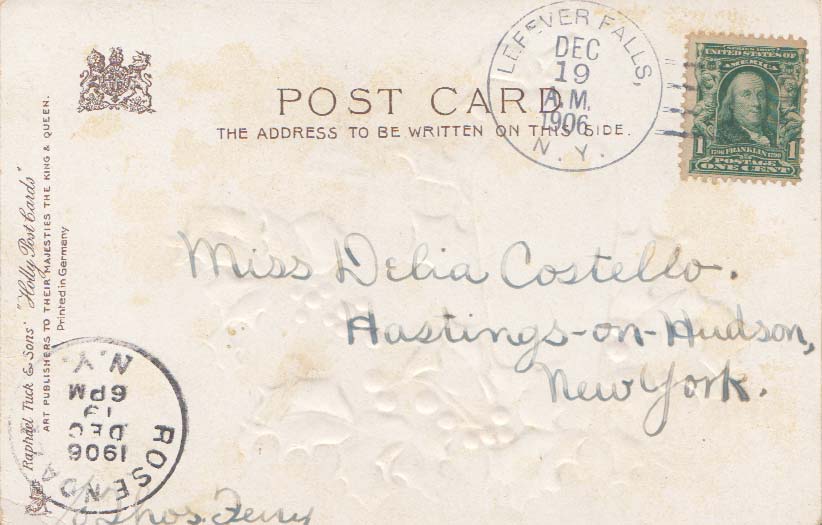 POST CARD
THE ADDRESS TO BE WRITTEN ON THIS SIDE.
LEFEVER FALLS,
DEC
19
A.M.
1906
N. Y.
SERIES 1902
UNITED STATES OF
AMERICA
1 1
1706 FRANKLIN 1790
POSTAGE
ONE CENT
Miss Delia Costello.
Hastings-on-Hudson,
New York.
c/o Thos. Ferry
Raphael Tuck & Sons' "Holly Post Cards"
ART PUBLISHERS TO THEIR MAJESTIES THE KING & QUEEN.
Printed in Germany
ROSENDA
1906
DEC
19
6PM
N.Y.